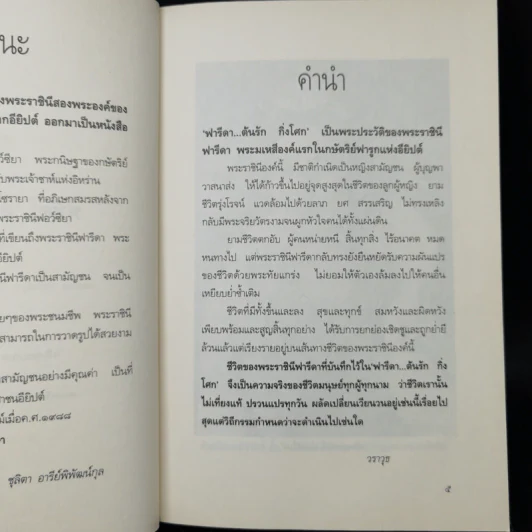 นะ
งพระราชินีสองพระองค์ของ
กอียิปต์ ออกมาเป็นหนังสือ
ว์ซียา พระกนิษฐาของกษัตริย์
ับพระเจ้าชาห์แห่งอิหร่าน
โซรายา ที่อภิเษกสมรสหลังจาก
พระราชินีฟอว์ซียา
ที่เขียนถึงพระราชินีฟารีดา พระ
อียิปต์
นีฟารีดาเป็นสามัญชน จนเป็น
ยๆของพระชนมชีพ พระราชินี
สามารถในการวาดรูปได้สวยงาม
สามัญชนอย่างมีคุณค่า เป็นที่
าชนอียิปต์
์เมื่อค.ศ.๑๙๘๘
า
ชุลิตา อารีย์พิพัฒน์กุล
คำนำ
'ฟารีดา...ต้นรัก กิ่งโศก' เป็นพระประวัติของพระราชินี
ฟารีดา พระมเหสีองค์แรกในกษัตริย์ฟารูกแห่งอียิปต์
พระราชินีองค์นี้ มีชาติกำเนิดเป็นหญิงสามัญชน ผู้บุญพา
วาสนาส่ง ให้ได้ก้าวขึ้นไปอยู่จุดสูงสุดในชีวิตของลูกผู้หญิง ยาม
ชีวิตรุ่งโรจน์ แวดล้อมไปด้วยลาภ ยศ สรรเสริญ ไม่ทรงเหลิง
กลับมีพระจริยวัตรงามจนผูกหัวใจคนได้ทั้งแผ่นดิน
ยามชีวิตตกอับ ผู้คนหน่ายหนี สิ้นทุกสิ่ง ไร้อนาคต หมด
หนทางไป แต่พระราชินีฟารีดากลับทรงยังยืนหยัดรับความผันแปร
ของชีวิตด้วยพระทัยแกร่ง ไม่ยอมให้ตัวเองล้มลงไปให้คนอื่น
เหยียบย่ำซ้ำเติม
ชีวิตที่มีทั้งขึ้นและลง สุขและทุกข์ สมหวังและผิดหวัง
เพียบพร้อมและสูญสิ้นทุกอย่าง ได้รับการยกย่องเชิดชูและถูกย่ำยี
ล้วนแล้วแต่เรียงรายอยู่บนเส้นทางชีวิตของพระราชินีองค์นี้
ชีวิตของพระราชินีฟารีดาที่บันทึกไว้ใน'ฟารีดา...ต้นรัก กิ่ง
โศก' จึงเป็นความจริงของชีวิตมนุษย์ทุกผู้ทุกนาม ว่าชีวิตเรานั้น
ไม่เที่ยงแท้ ปรวนแปรทุกวัน ผลัดเปลี่ยนเวียนวนอยู่เช่นนี้เรื่อยไป
สุดแต่วิถีกรรมกำหนดว่าจะดำเนินไปเช่นใด
วราวุธ
๕